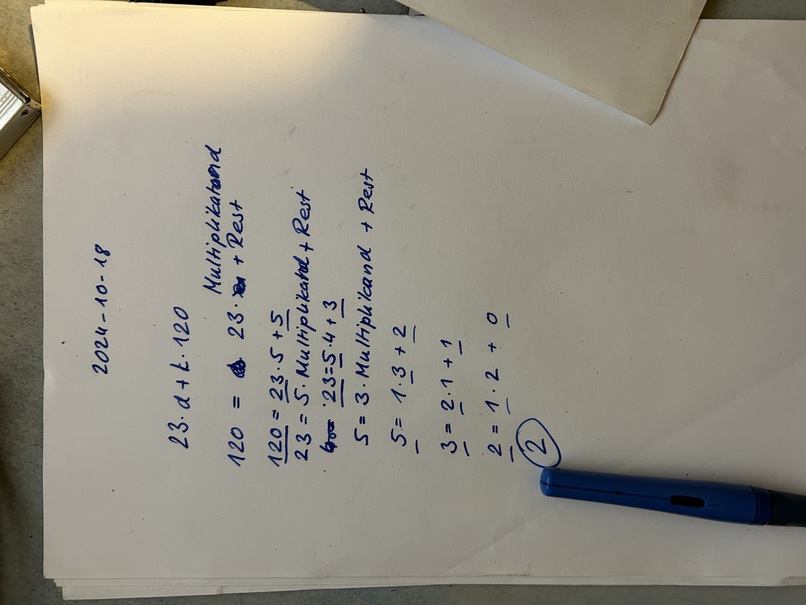 2024-10-18
23·d+k·120
Multiplikand
120 = 23· + Rest
120 = 23·5+5
23 = 5·Multiplikand + Rest
23=5·4+3
5 = 3·Multiplikand + Rest
5= 1·3+2
3=2·1+1
2=1·2+0
2